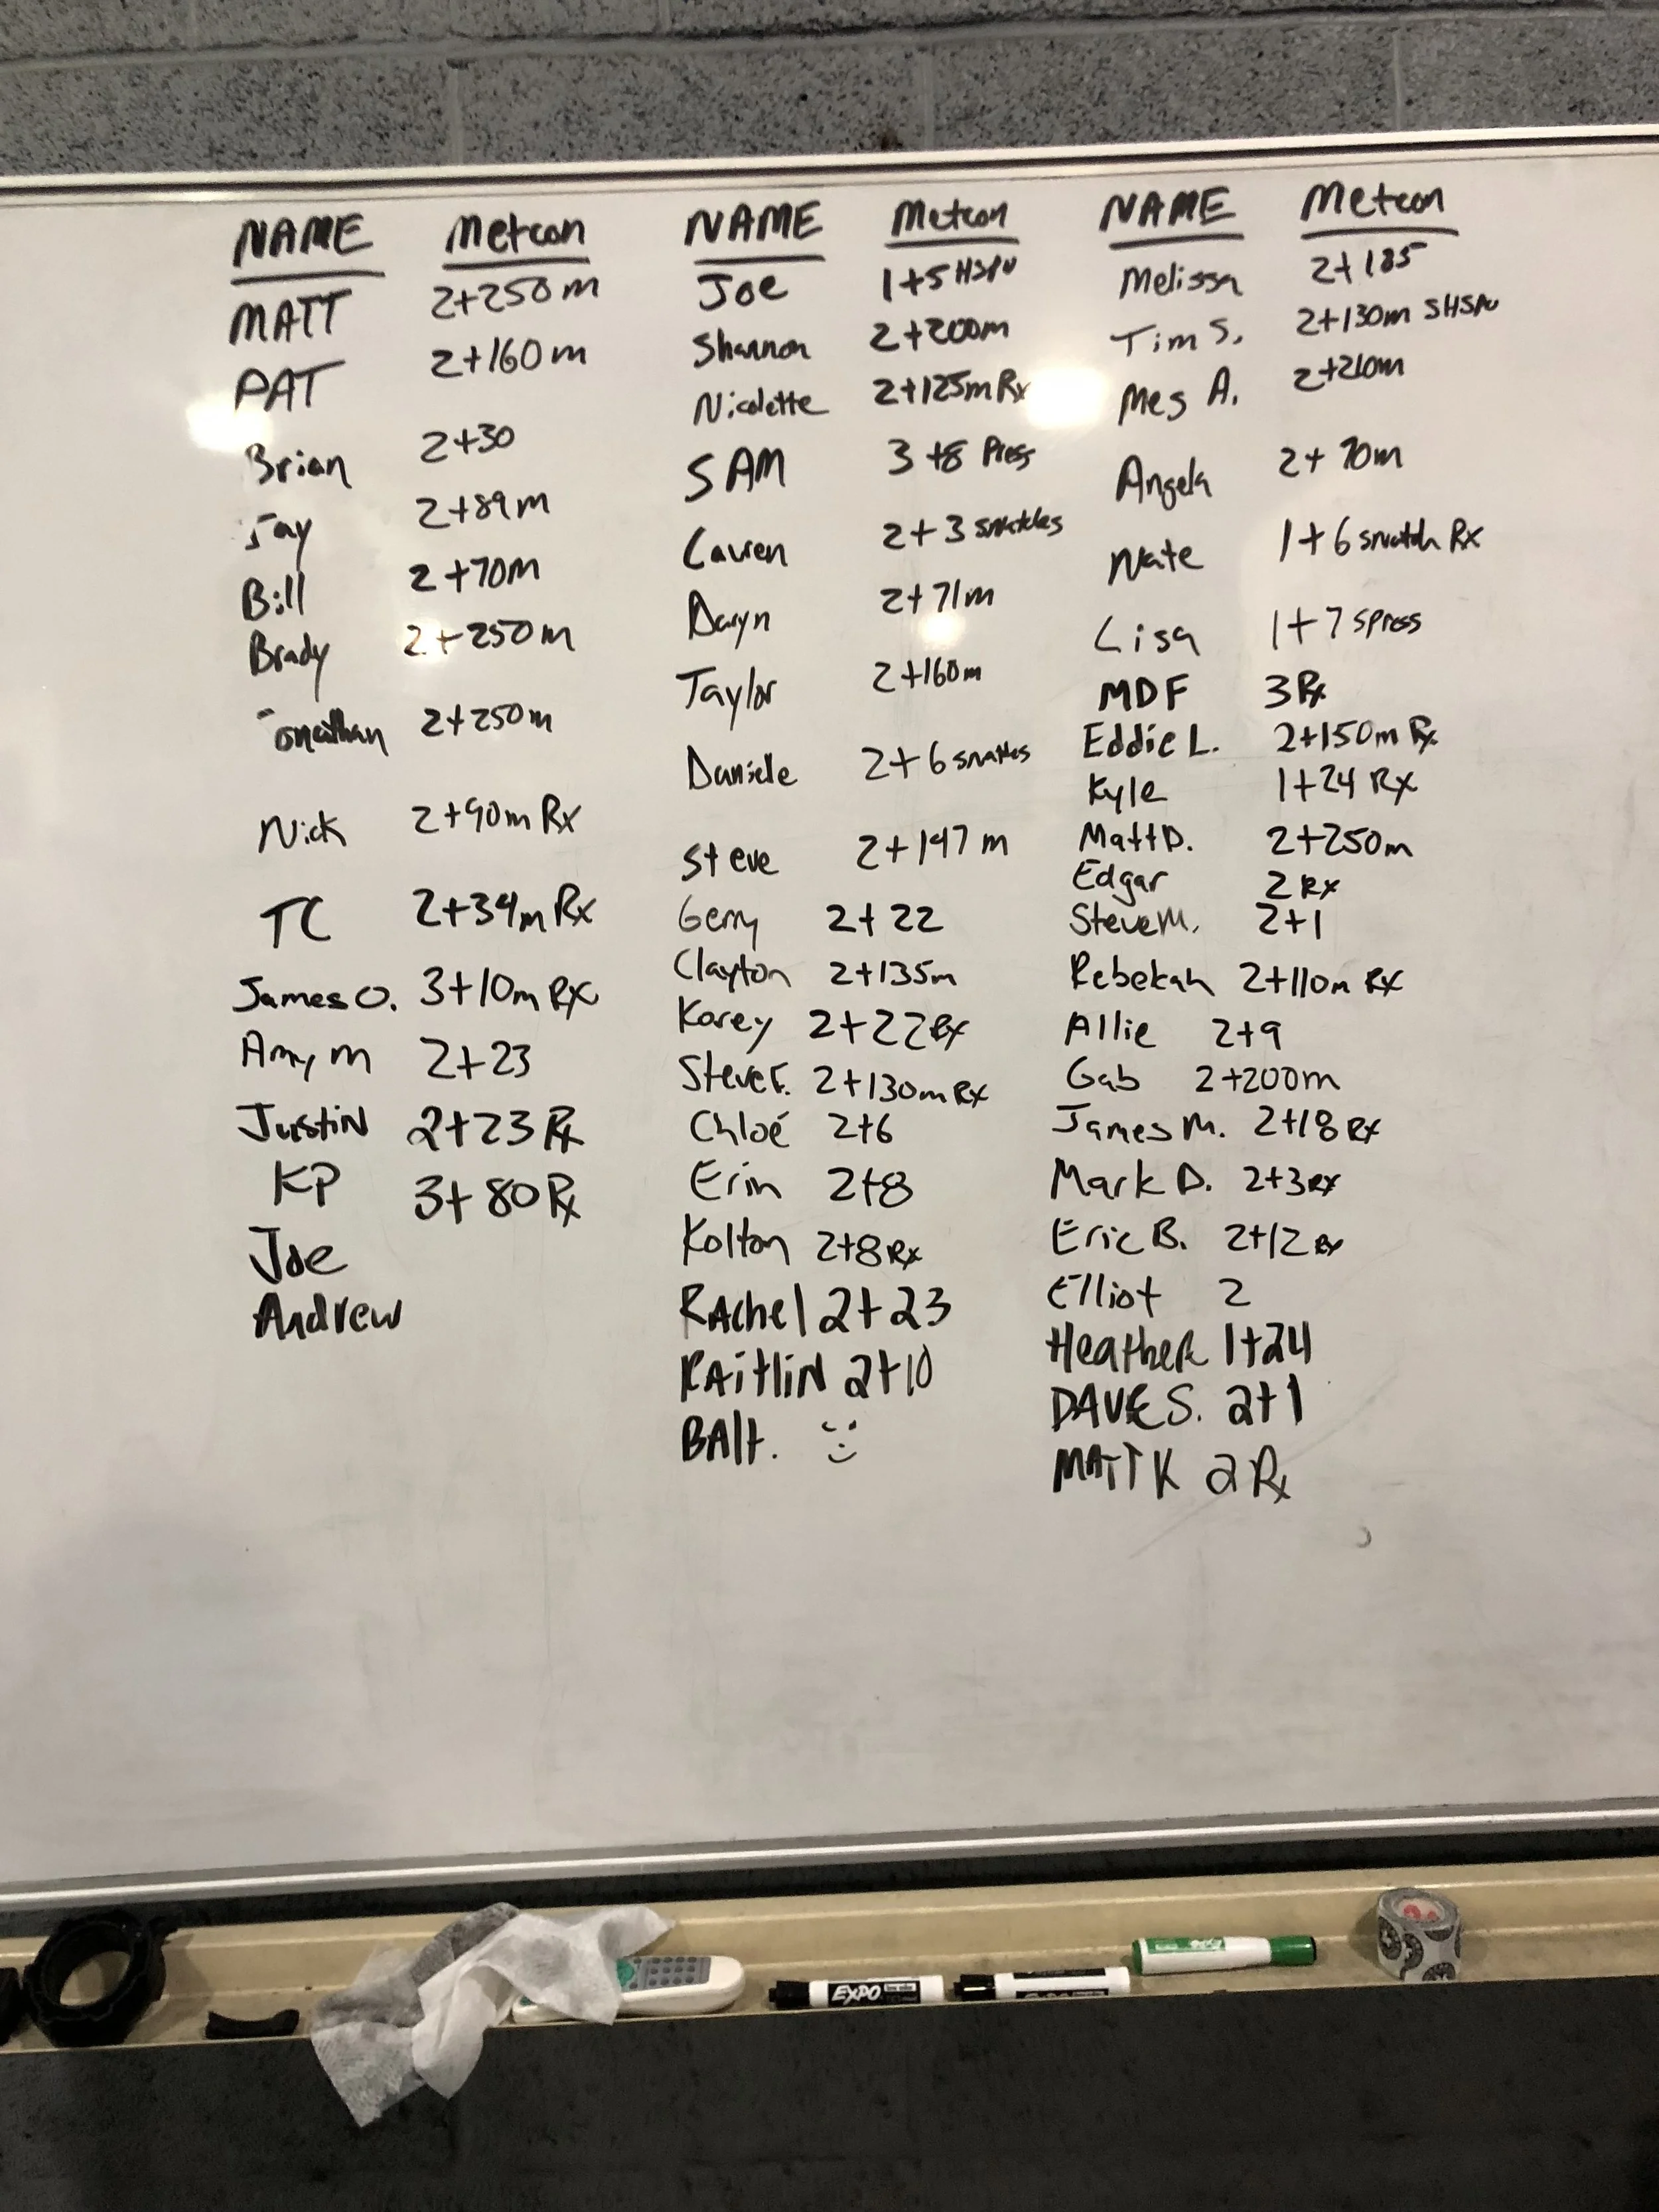 NAME Metcon
MATT 2+250m
PAT 2+160m
Brian 2+30
Jay 2+89m
Bill 2+70m
Brady 2+250m
Jonathan 2+250m
Nick 2+90m Rx
TC 2+34m Rx
James O. 3+10m Rx
Amy m 2+23
Justin 2+23 Rx
KP 3+80 Rx
Joe
Andrew
NAME Metcon
Joe 1+5 HSPU
Shannon 2+200m
Nicolette 2+125m Rx
SAM 3+8 Press
Lauren 2+3 snatches
Daryn 2+71m
Taylor 2+160m
Daniele 2+6 snatches
Steve 2+147m
Gerry 2+22
Clayton 2+135m
Korey 2+22 Rx
Steve F. 2+130m Rx
Chloé 2+6
Erin 2+8
Kolton 2+8 Rx
RAchel 2+23
KAitliN 2+10
BAlt.
NAME Metcon
Melissa 2+185
Tim S. 2+130m SHSPU
Meg A. 2+210m
Angela 2+70m
Nate 1+6 snatch Rx
Lisa 1+7 spress
MDF 3 Rx
Eddie L. 2+150m Rx
Kyle 1+24 Rx
Matt D. 2+250m
Edgar 2 Rx
Steve M. 2+1
Rebekah 2+110m Rx
Allie 2+9
Gab 2+200m
James M. 2+18 Rx
Mark D. 2+3 Rx
Eric B. 2+12 Rx
Elliot 2
HeatheR 1+24
DAVE S. 2+1
MATT K 2 Rx
EXPO